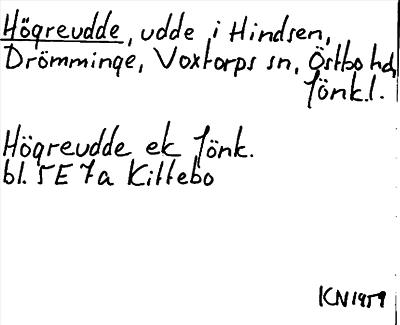 Högreudde, udde i Hindsen,
Drömminge, Voxtorps sn, Östbo hd,
Jönk.l.
Högreudde ek Jönk.
bl. 5E 7a Kittebo
KN1959